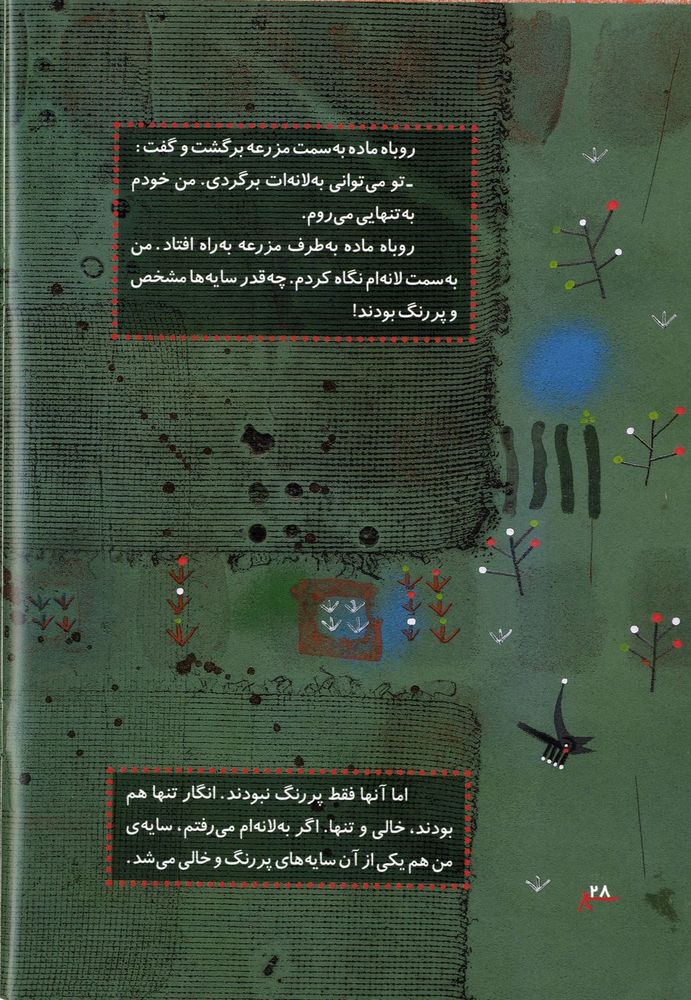 روباه ماده به‌سمت مزرعه برگشت و گفت:
ـ تو می‌توانی به‌لانه‌ات برگردی. من خودم
به‌تنهایی می‌روم.
روباه ماده به‌طرف مزرعه به‌راه افتاد. من
به‌سمت لانه‌ام نگاه کردم. چه‌قدر سایه‌ها مشخص
و پررنگ بودند!
اما آنها فقط پررنگ نبودند. انگار تنها هم
بودند، خالی و تنها. اگر به‌لانه‌ام می‌رفتم، سایه‌ی
من هم یکی از آن سایه‌های پررنگ و خالی می‌شد.
۲۸